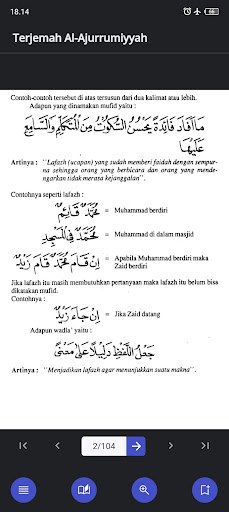 18.14
Terjemah Al-Ajurrumiyyah
Contoh-contoh tersebut di atas tersusun dari dua kalimat atau lebih.
Adapun yang dinamakan mufid yaitu :
مَا أَفَادَ فَائِدَةً يَحْسُنُ السُّكُوْتُ مِنَ الْمُتَكَلِّمِ وَالسَّامِعِ
عَلَيْهَا
Artinya : "Lafazh (ucapan) yang sudah memberi faidah dengan sempur-
na sehingga orang yang berbicara dan orang yang mende-
ngarkan tidak merasa kejanggalan".
Contohnya seperti lafazh :
مُحَمَّدٌ قَائِمٌ = Muhammad berdiri
مُحَمَّدٌ فِي الْمَسْجِدِ = Muhammad di dalam masjid
إِنْ قَامَ مُحَمَّدٌ قَامَ زَيْدٌ = Apabila Muhammad berdiri maka
Zaid berdiri
Jika lafazh itu masih membutuhkan pertanyaan maka lafazh itu belum bisa
dikatakan mufid.
Contohnya :
إِنْ جَاءَ زَيْدٌ = Jika Zaid datang
Adapun wadla' yaitu :
جَعْلُ اللَّفْظِ دَلِيْلًا عَلَى مَعْنًى
Artinya : "Menjadikan lafazh agar menunjukkan suatu makna".
2/104